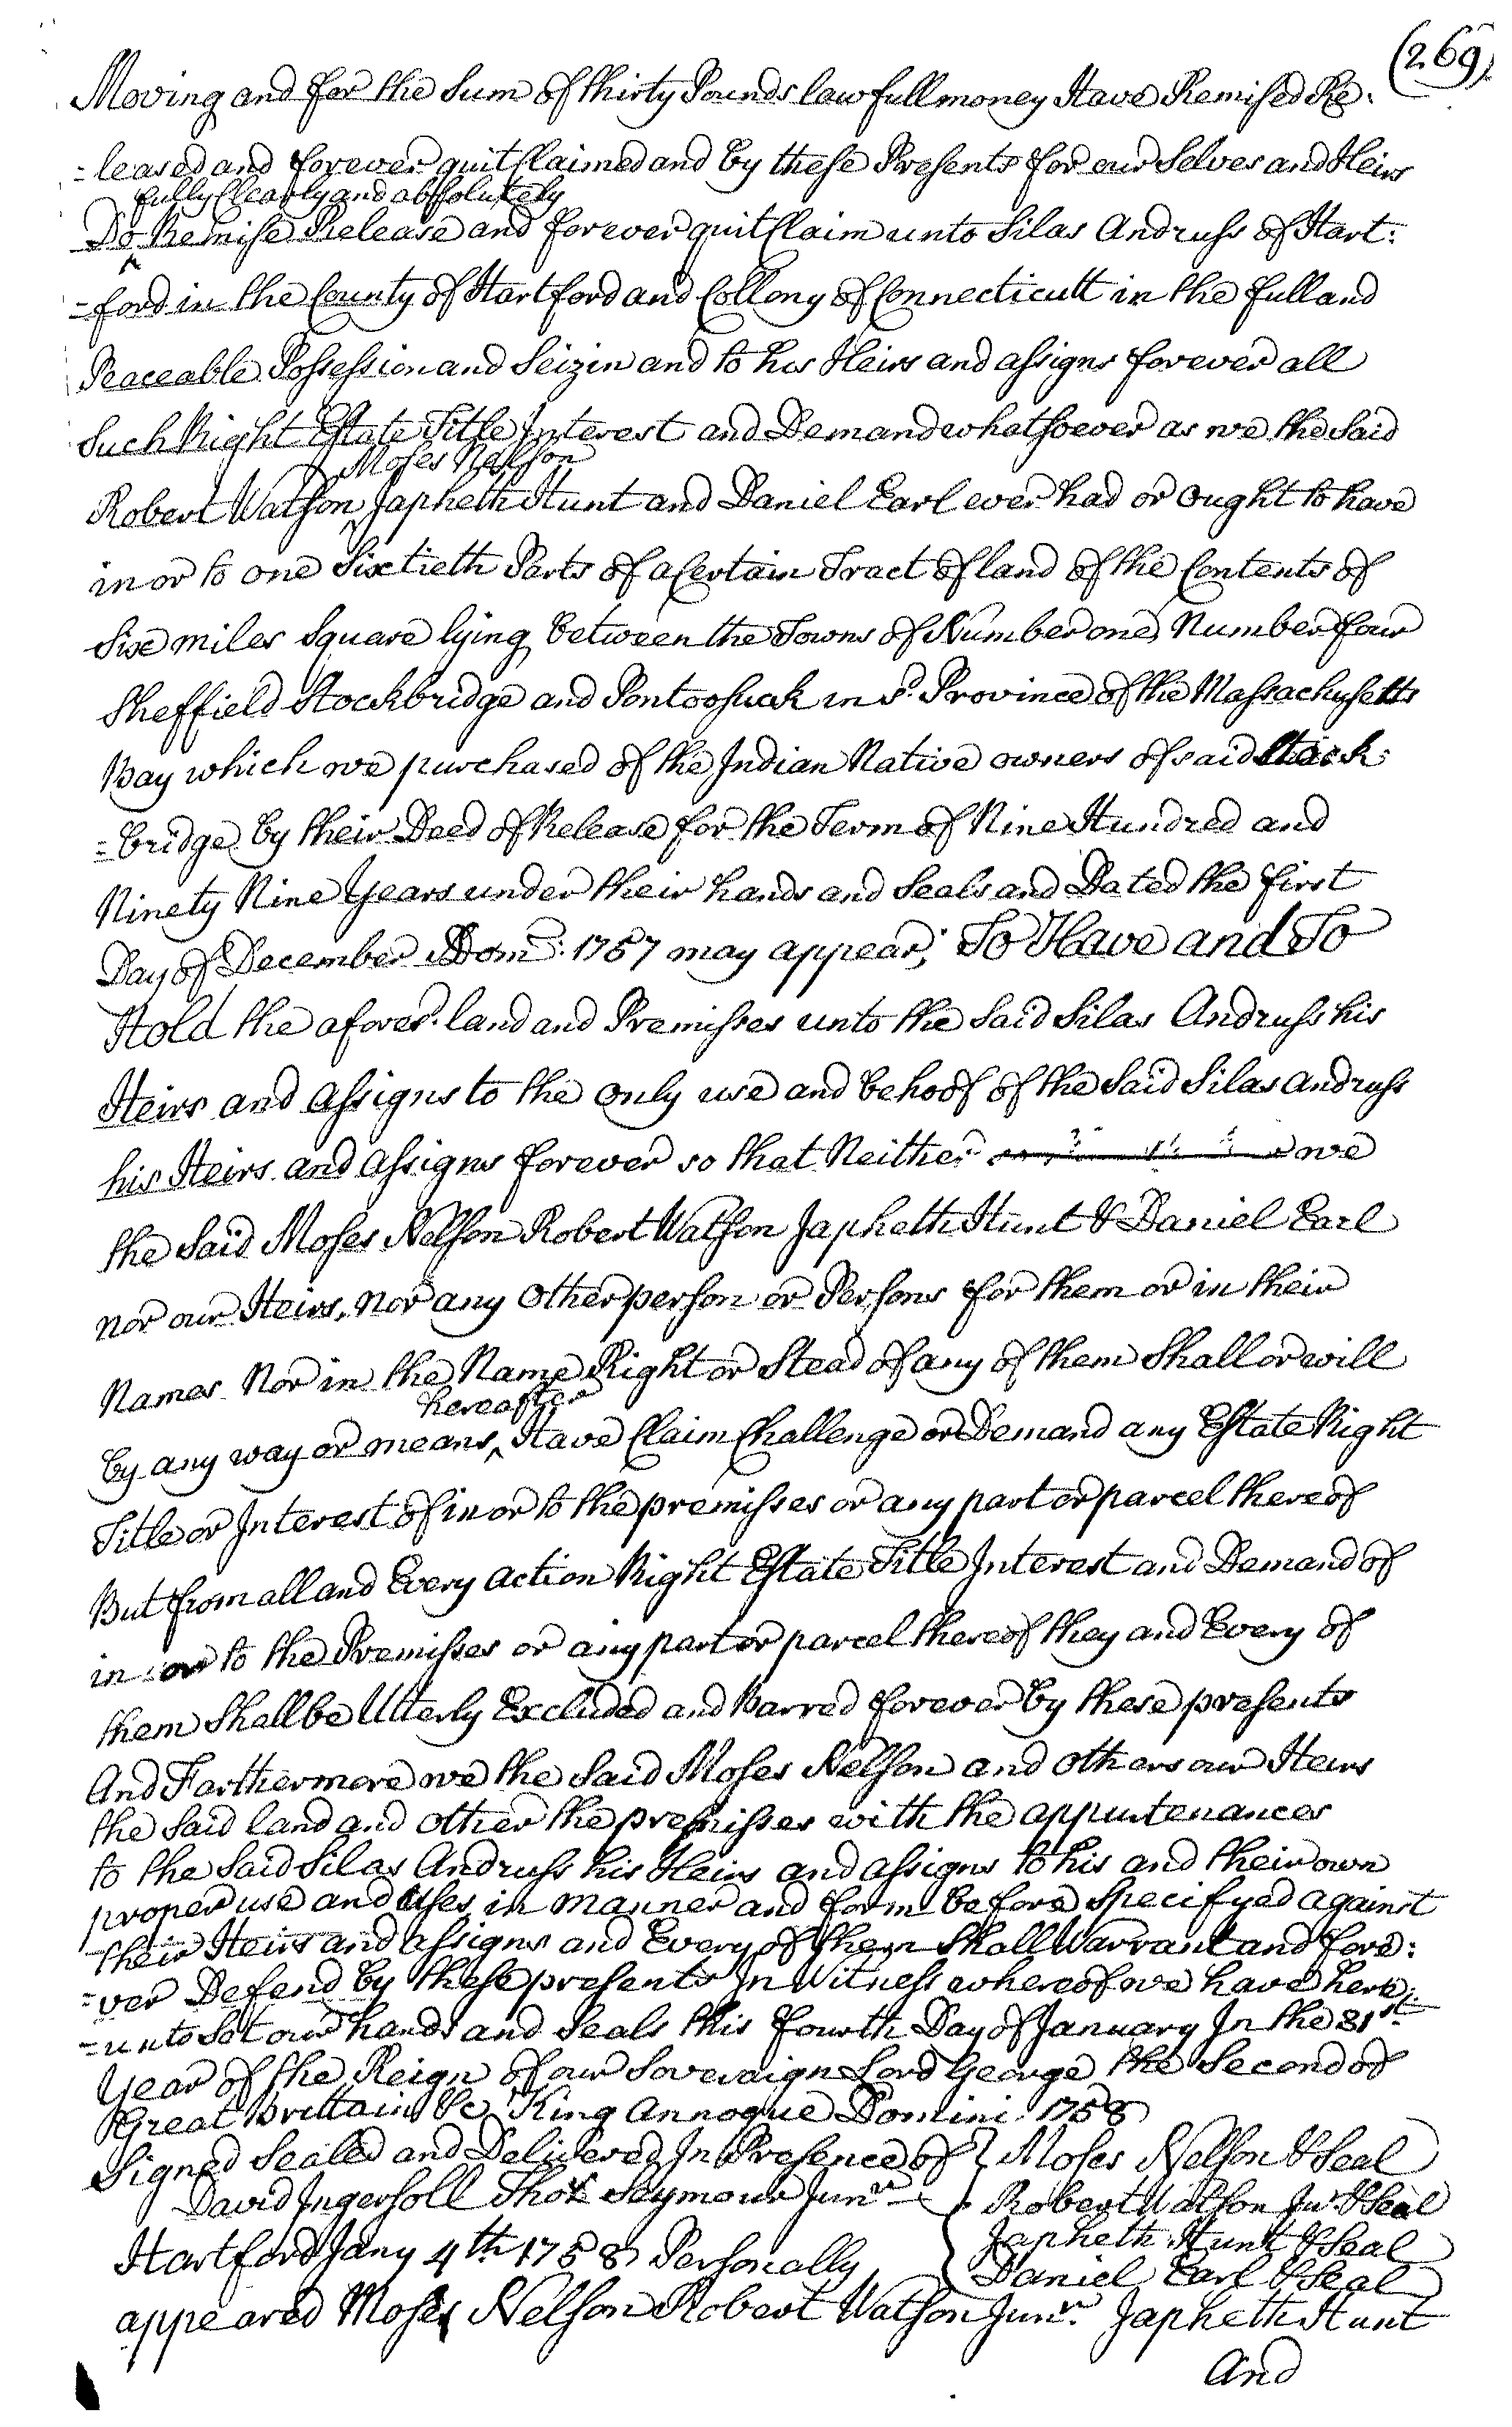 (269)
Moving and for the Sum of thirty Pounds lawfull money Have Remised Re-
=leased and forever quit Claimed and by these Presents for our Selves and Heirs
fully Clearly and absolutely
Do ^ Remise Release and forever quit Claim unto Silas Andruss of Hart:
=ford in the County of Hartford and Collony of Connecticutt in the full and
Peaceable Possession and Seizin and to his Heirs and assigns forever all
Such Right Estate Title Interest and Demand whatsoever as we the Said
Moses Nellson
Robert Watson ^ Japheth Hunt and Daniel Earl ever had or ought to have
in or to one Sixtieth Parts of a Certain Tract of land of the Contents of
Six miles Square lying between the Towns of Number one, Number four
Sheffield Stockbridge and Pontoosuck in sd. Province of the Massachusetts
Bay which we purchased of the Indian Native owners of said Stock:
=bridge by their Deed of Release for the Term of Nine Hundred and
Ninety Nine Years under their hands and Seals and Dated the first
Day of December Dom: 1757 may appear; To Have and To
Hold the afores.d land and Premisses unto the Said Silas Andruss his
Heirs and assigns to the only use and behoof of the Said Silas Andruss
his Heirs and assigns forever so that Neither we
the Said Moses Nelson Robert Watson Japheth Hunt & Daniel Earl
nor our Heirs, nor any Other person or Persons for them or in their
Names Nor in the Name Right or Stead of any of them Shall or will
hereafter
by any way or means ^ Have Claim Challenge or Demand any Estate Right
Title or Interest of in or to the premisses or any part or parcel thereof
But from all and Every action Right Estate Title Interest and Demand of
in or to the Premisses or any part or parcel thereof they and Every of
them Shall be Utterly Excluded and Barred forever by these presents
And Farthermore we the Said Moses Nelson and others our Heirs
the Said land and other the premisses with the appurtenances
to the Said Silas Andruss his Heirs and assigns to his and their own
proper use and Uses in manner and form before Specifyed against
their Heirs and assigns and Every of them Shall Warrant and fore:
=ver Defend by these presents In Witness whereof we have here
=unto Set our hands and Seals this fourth Day of January In the 31st
Year of the Reign of our Soveraign Lord George the Second of
Great Brittain &c King Annoque Domini 1758
Signed Sealed and Delivered In Presence of } Moses Nelson & Seal
David Ingersoll Thos Seymour Junr Robert Watson Junr. & Seal
Japheth Hunt & Seal
Hartford Jany 4th 1758 Personally Daniel Earl & Seal
appeared Moses Nelson Robert Watson Junr. Japheth Hunt
And